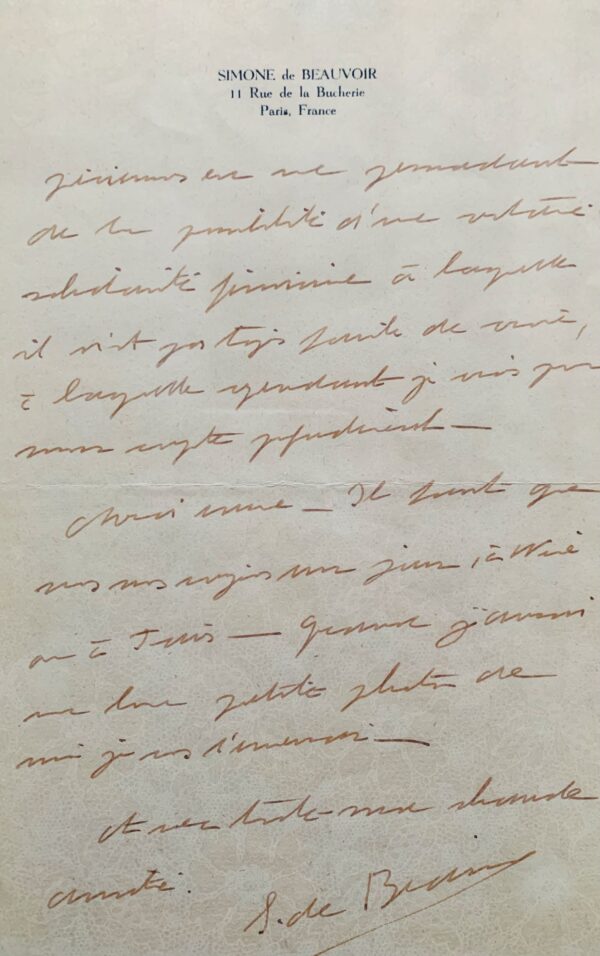 SIMONE de BEAUVOIR
11 Rue de la Bucherie
Paris, France
en me
de la possibilité d'une
solidarité féminine à laquelle
il n'est pas facile de
à laquelle cependant je crois pour
mon compte profondément —
Il faut que
nous nous voyions un jour, à Nice
ou à Paris — Quand j'aurai
une bonne petite photo de
moi je vous l'enverrai —
et avec toute ma chaude
amitié.
S. de Beauvoir